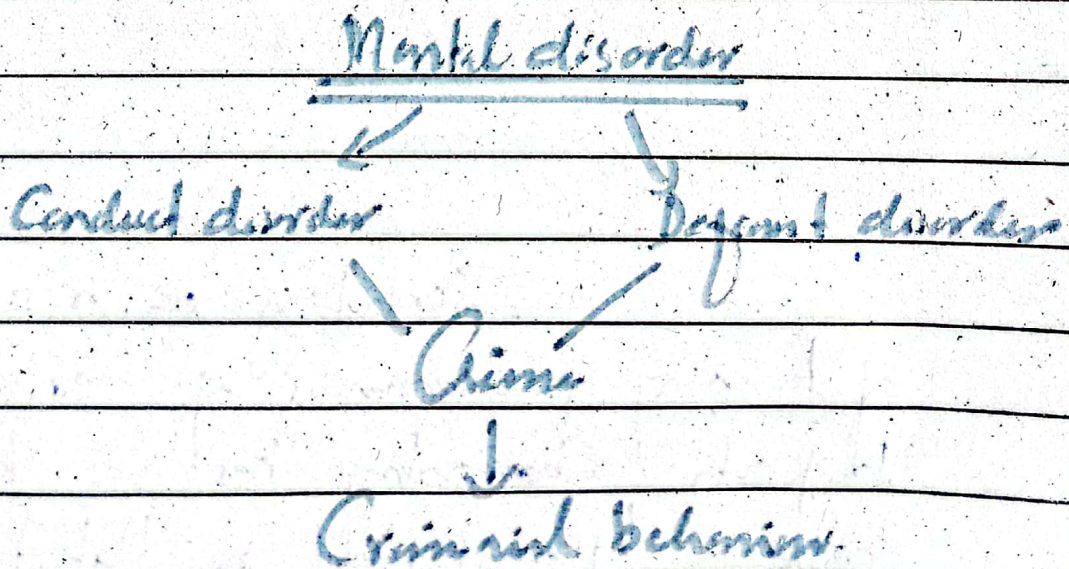 Mental disorder
Conduct disorder Defiant disorder
Crime
Criminal behaviour